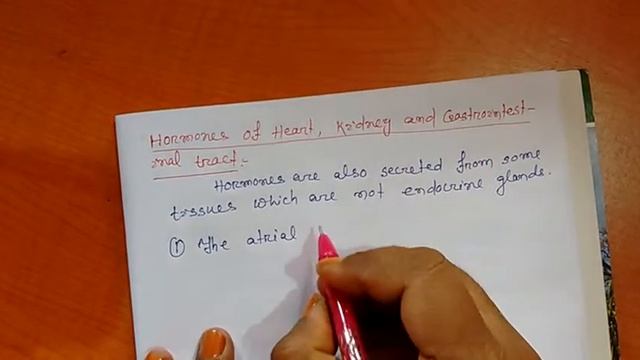 Hormones of Heart, Kidney and Gastrointest-
inal tract:-
Hormones are also secreted from some
tissues which are not endocrine glands.
① The atrial